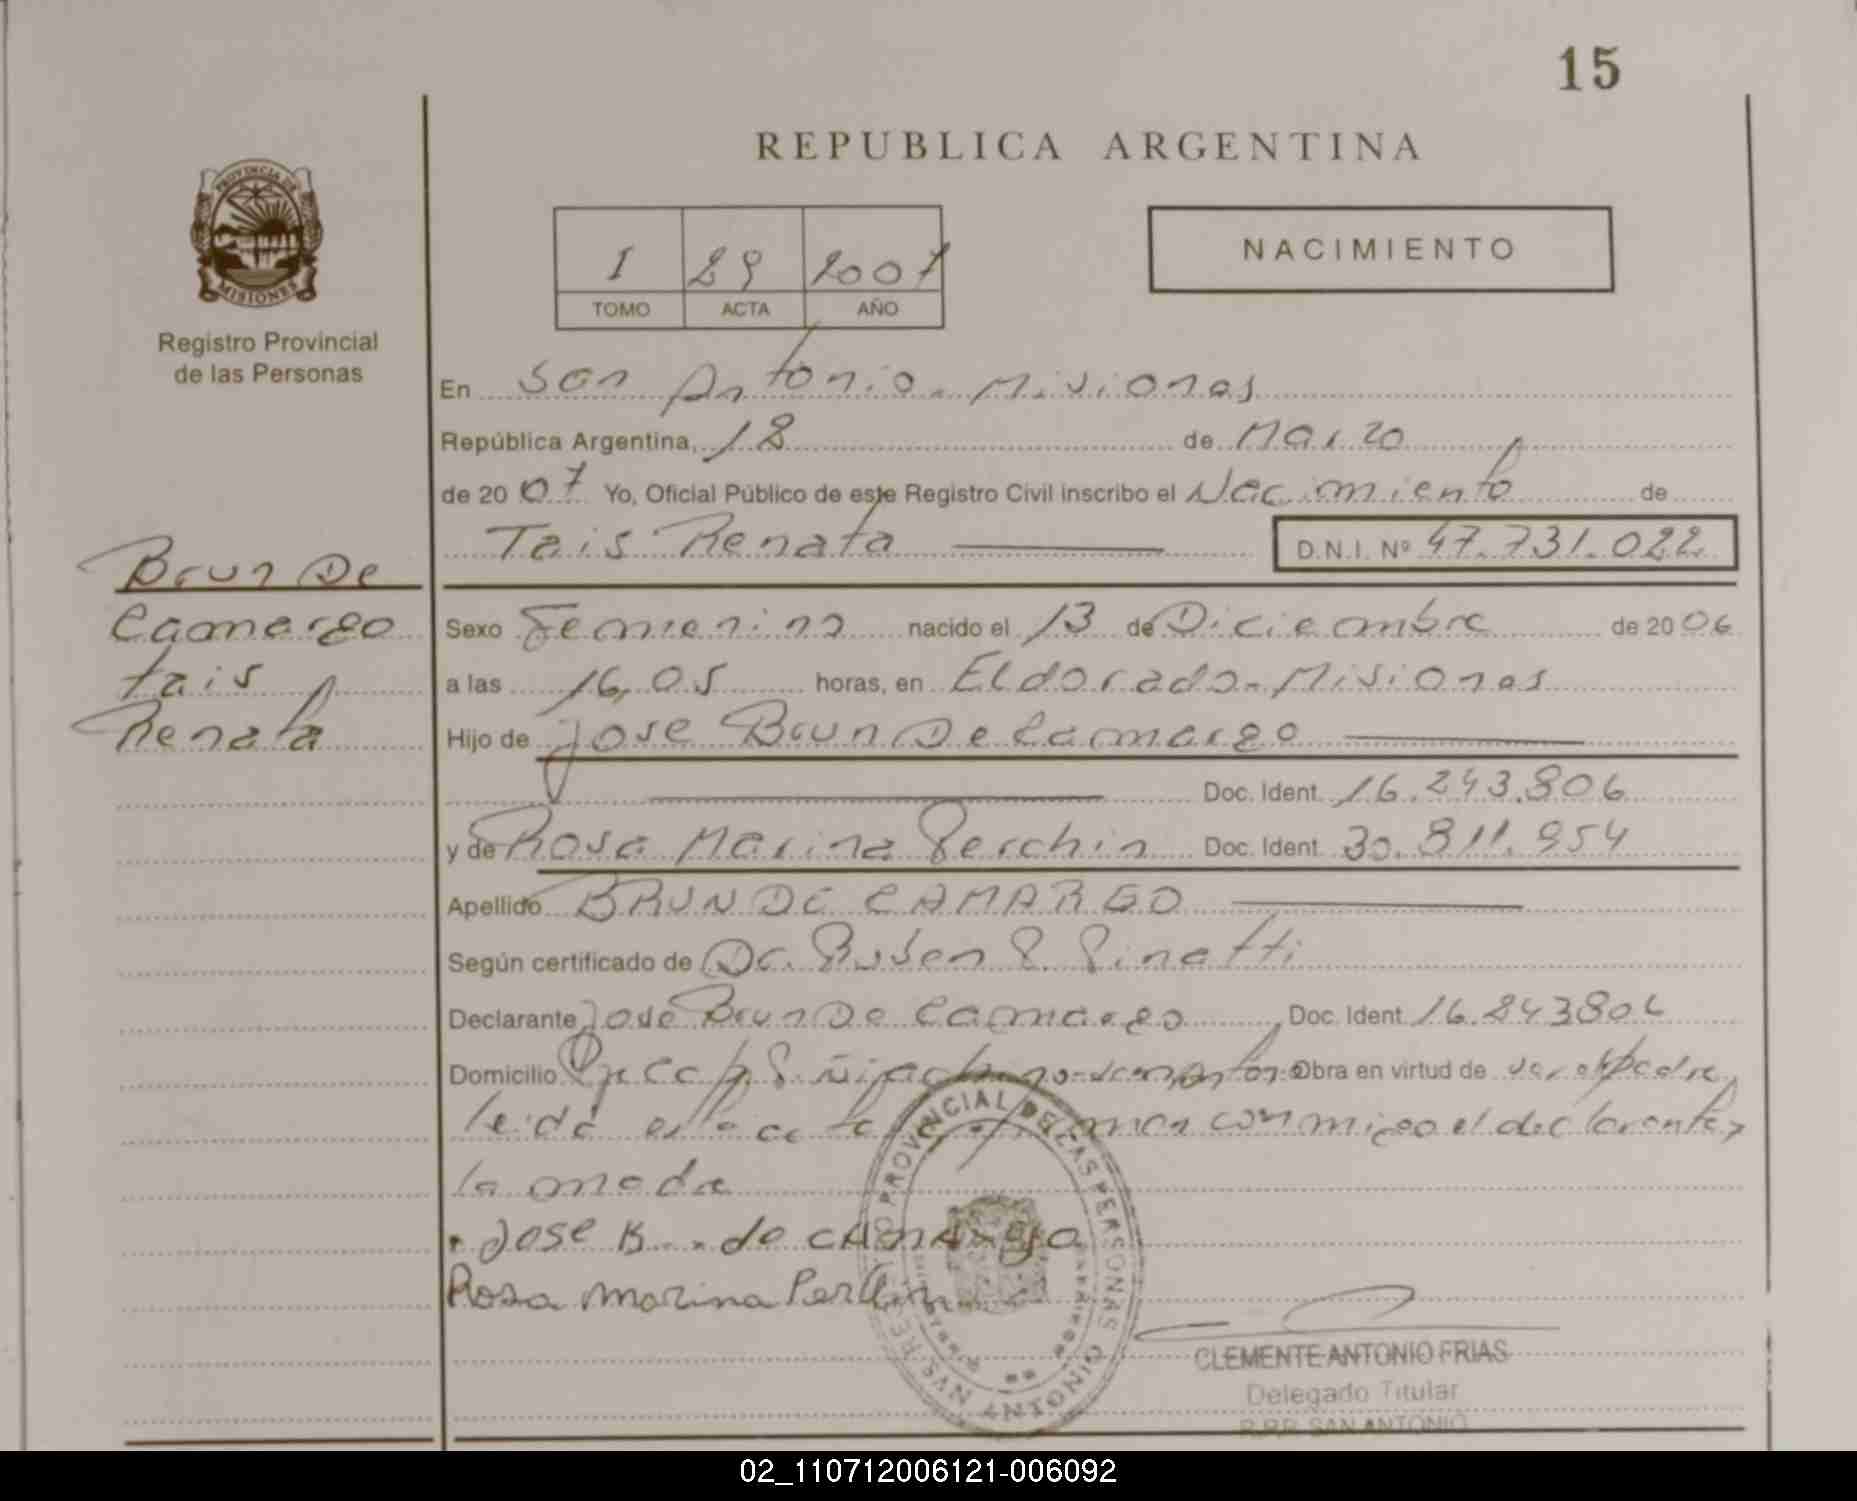 15
REPUBLICA ARGENTINA
PROVINCIA DE MISIONES
Registro Provincial
de las Personas
I 29 2007
TOMO ACTA AÑO
NACIMIENTO
En San Antonio - Misiones
República Argentina, 18 de Marzo
de 2007 Yo, Oficial Público de este Registro Civil inscribo el Nacimiento de
Tais Renata D.N.I. Nº 47.731.022
Brun De
Camargo
Tais
Renata
Sexo Femenino nacido el 13 de Diciembre de 2006
a las 16,05 horas, en Eldorado - Misiones
Hijo de Jose Brun De Camargo
Doc. Ident. 16.243.806
y de Rosa Marina Perchin Doc. Ident. 30.811.954
Apellido BRUN DE CAMARGO
Según certificado de Dr. Ruben R. Pinetti
Declarante Jose Brun De Camargo Doc. Ident. 16.243806
Domicilio Obra en virtud de ser el padre,
leida esta acta conmigo el declarante y
la madre
Jose B... de CAMARGO
Rosa Marina Perchin
REG. PROVINCIAL DE LAS PERSONAS
SAN ANTONIO
CLEMENTE ANTONIO FRIAS
Delegado Titular
R.P.P. SAN ANTONIO
02_110712006121-006092